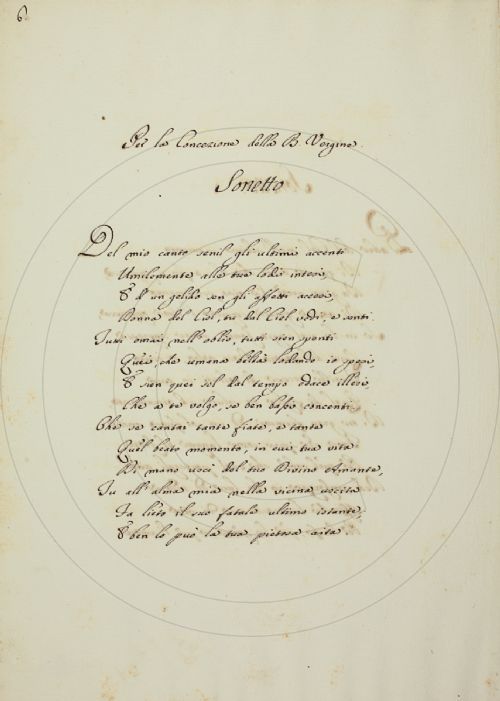 6.
Per la Concezione della B. Vergine.
Sonetto
Del mio canto senil gli ultimi accenti
Umilemente alle tue lodi intesi,
E d'un gelido sen gli affetti accesi,
Donna del Ciel, tu dal Ciel odi, e senti.
Tutti omai nell'oblio, tutti sien spenti
Quei, che umana beltà lodando io spesi,
E sien quei sol dal tempo edace illesi,
Che a te volgo, se ben bassi concenti.
Che se cantai tante fiate, e tante
Quel beato momento, in cui tua vita
Di mano uscì del tuo Divino Amante,
Tu all'alma mia nella vicina uscita
Fa lieto il suo fatale ultimo istante,
E ben lo può la tua pietosa aita.